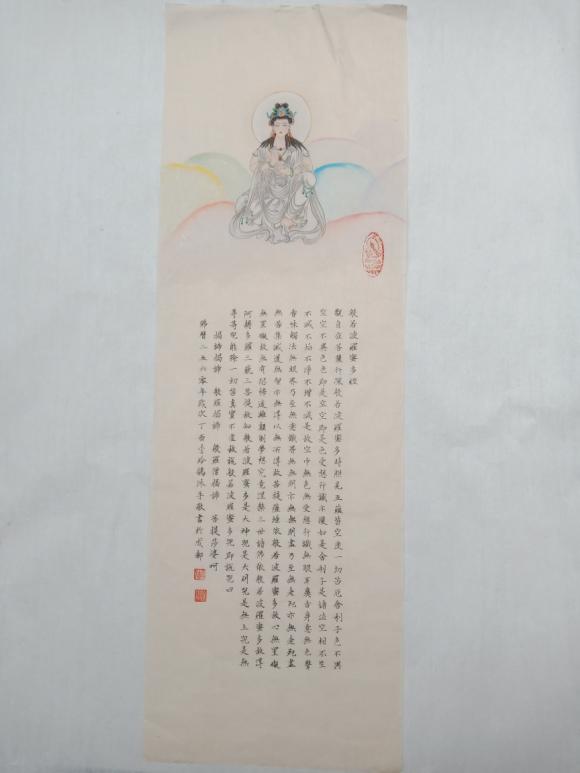 般若波羅蜜多經
觀自在菩薩行深般若波羅蜜多時照見五蘊皆空度一切苦厄舍利子色不異
空空不異色色即是空空即是色受想行識亦復如是舍利子是諸法空相不生
不滅不垢不淨不增不減是故空中無色無受想行識無眼耳鼻舌身意無色聲
香味觸法無眼界乃至無意識界無無明亦無無明盡乃至無老死亦無老死盡
無苦集滅道無智亦無得以無所得故菩提薩埵依般若波羅蜜多故心無罣礙
無罣礙故無有恐怖遠離顛倒夢想究竟涅槃三世諸佛依般若波羅蜜多故得
阿耨多羅三藐三菩提故知般若波羅蜜多是大神咒是大明咒是無上咒是無
等等咒能除一切苦真實不虛故說般若波羅蜜多咒即說咒曰
揭諦揭諦 般羅揭諦 般羅僧揭諦 菩提莎婆呵
佛曆二五六零年歲次丁酉沐手敬書於成都